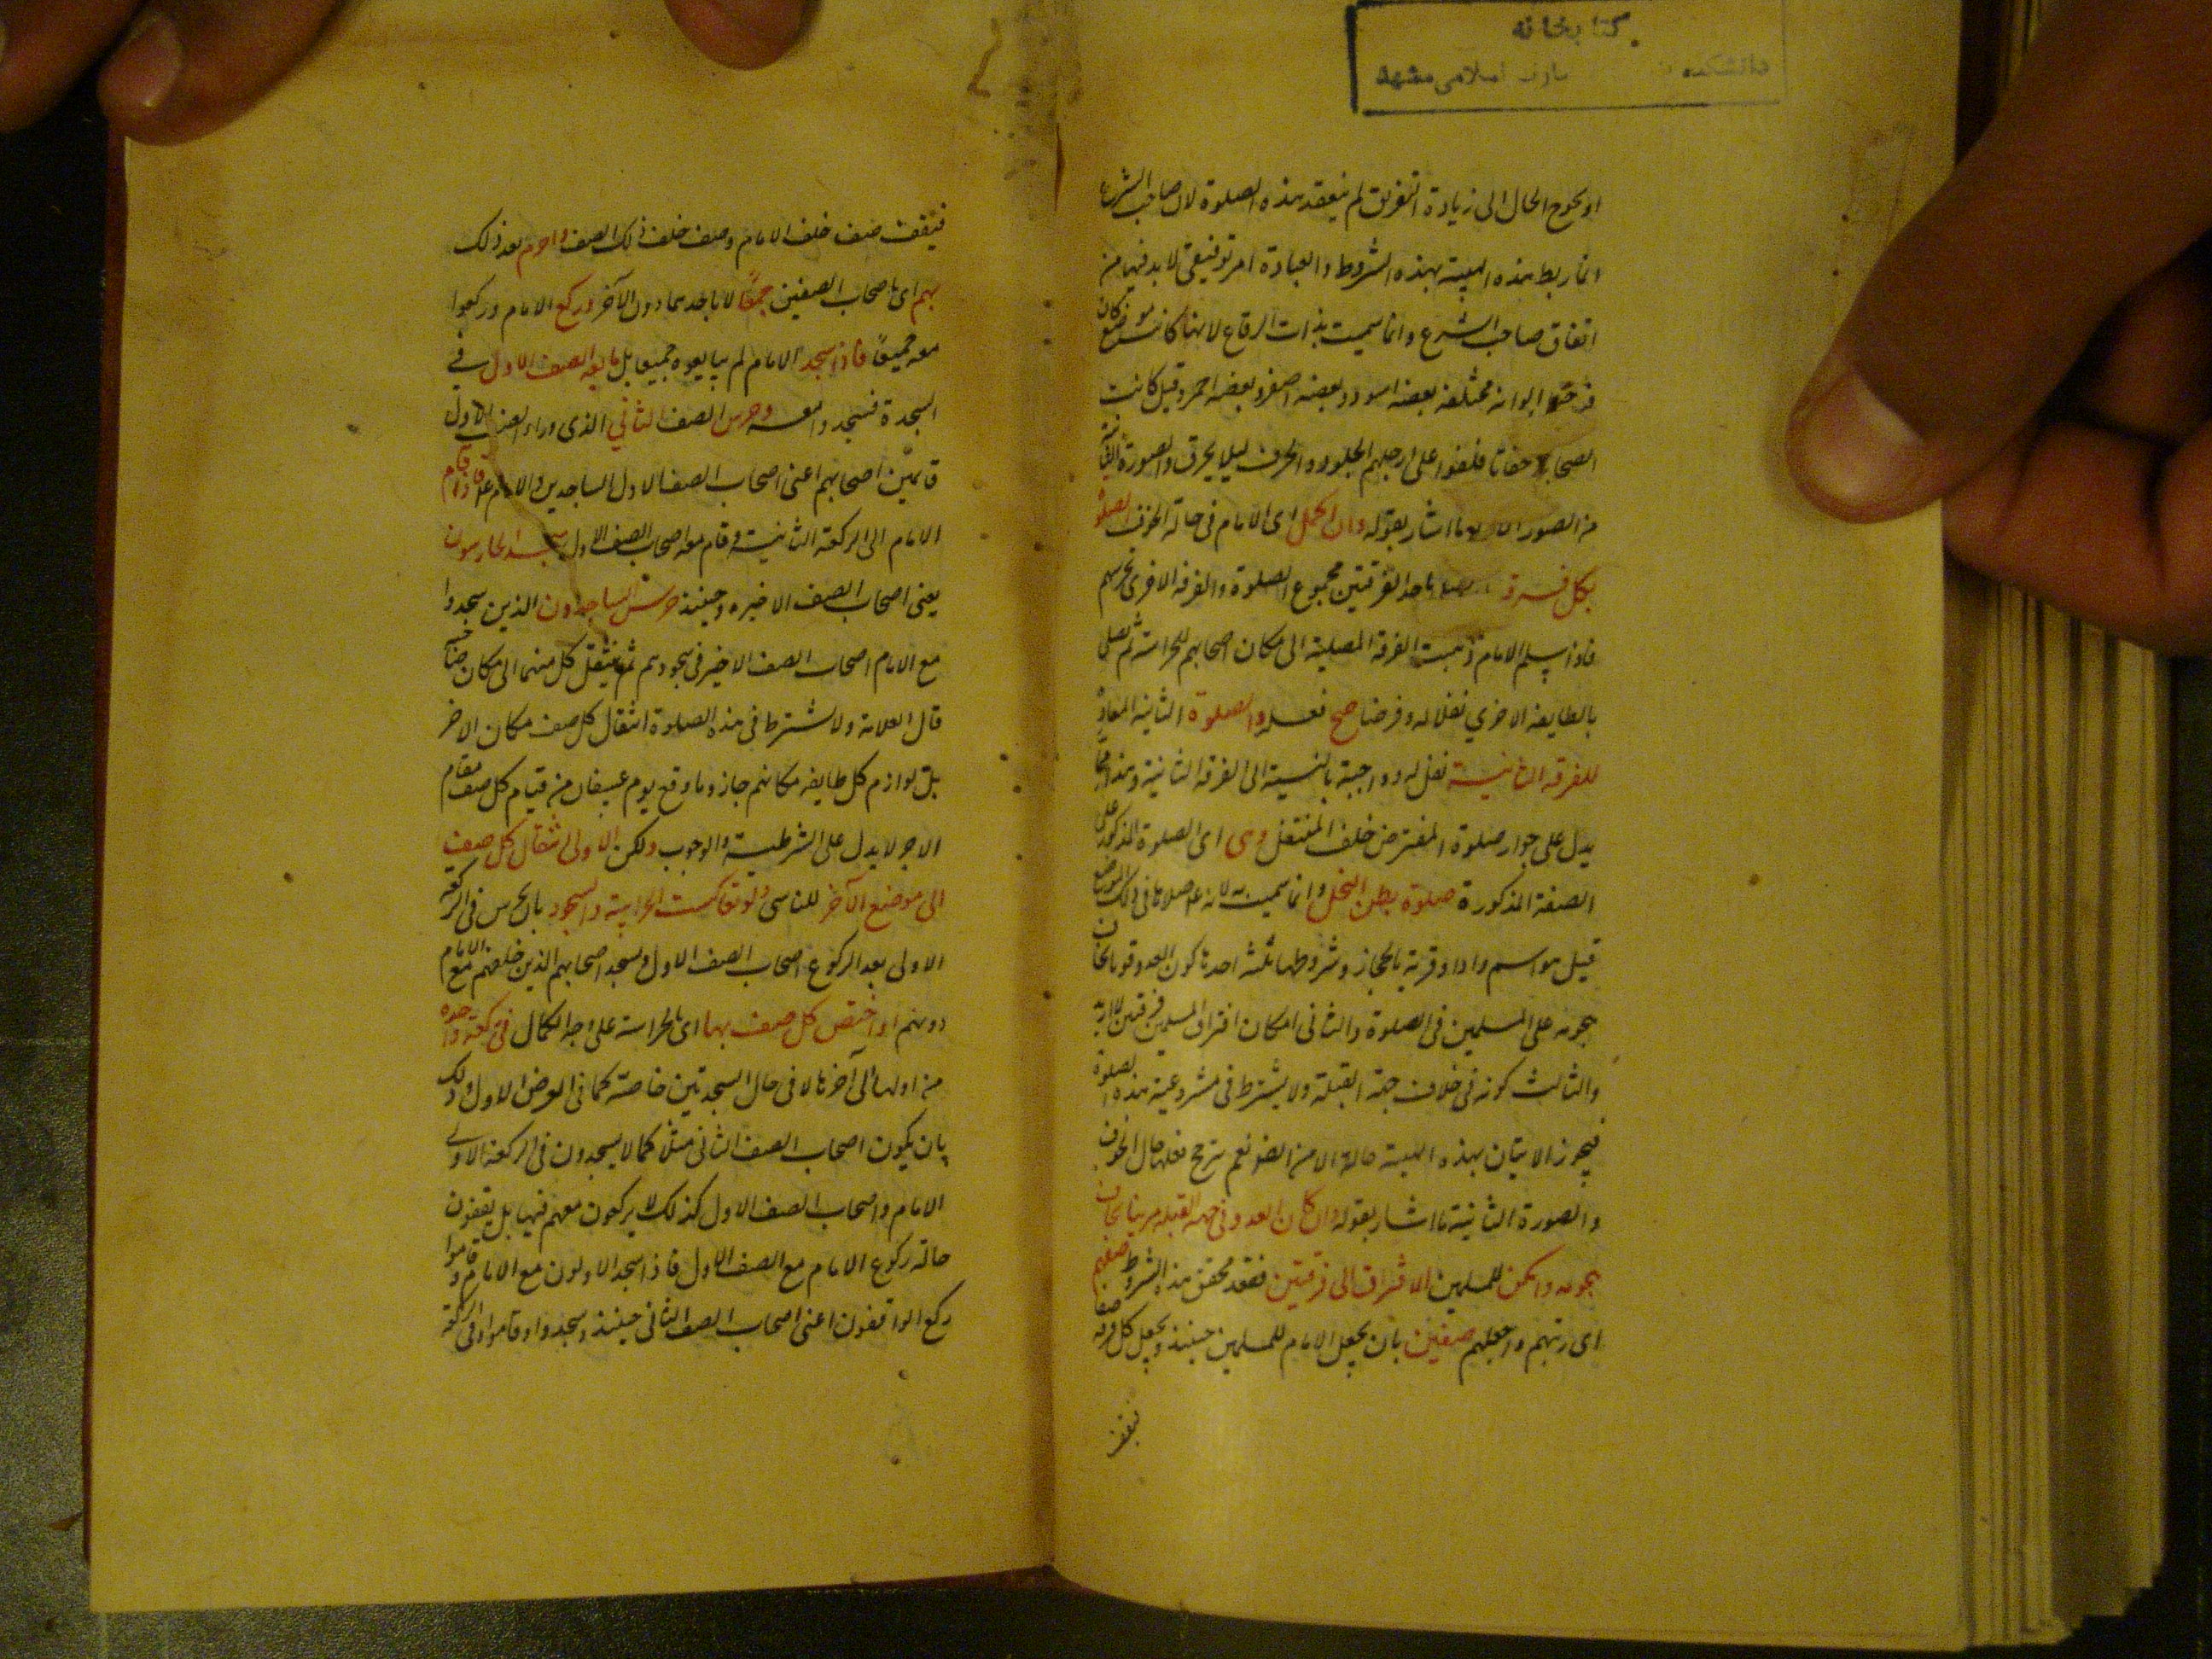 كتابخانه
دانشكده معارف اسلامى مشهد
او يحوج الحال الى زيادة التفريق لم ينعقد هذه الصلوة لان صاحب الشرع
انما ربط هذه الهيئة بهذه الشروط والعبادة امر توقيفى لا بد فيها من
اتفاق صاحب الشرع وانما سميت بذات الرقاع لانها كانت موضع كان
الوانه مختلفة بعضه اسود وبعضه اصفر وبعضه احمر وقيل كانت
الصحابة حفاتا فلفوا على ارجلهم الجلود والخرق ليلا يحرق والصورة الثانية
من الصور ما اشار بقوله وان اكمل اى الامام فى حالة الخوف الصلوة
بكل فرقة باحد الفرقتين مجموع الصلوة والفرقة الاخرى تحرسهم
فاذا سلم الامام ذهبت الفرقة المصلية الى مكان اصحابهم للحراسة ثم يصلى
بالطايفة الاخرى نفلا له وفرضا صح فعله والصلوة الثانية المعادة
للفرقة الثانية نفل له وواجبة بالنسبة الى الفرقة الثانية وهذا مما
يدل على جواز صلوة المفترض خلف المتنفل وهى اى الصلوة المذكورة على
الصفة المذكورة صلوة بطن النخل وانما سميت به لانه عم صلاها فى ذلك الموضع
قيل هو اسم واد او قرية بالحجاز وشروطها ثلثة احدها كون العدو قويا يخاف
هجومه على المسلمين فى الصلوة والثانى امكان افتراق المسلمين فرقتين لا ازيد
والثالث كونه فى خلاف جهة القبلة ولا يشترط فى مشروعية هذه الصلوة
فيجوز الاتيان بهذه الهيئة حالة الامن ايضا نعم يترجح فعلها حال الخوف
والصورة الثانية ما اشار بقوله وان كان العدو فى جهة القبلة مرئيا يخاف
هجومه وامكن للمسلمين الافتراق الى فرقتين فقد تحقق هذه الشروط صفهم
اى رتبهم واجعلهم صفين بان يجعل الامام للمسلمين حينئذ ويجعل كل فرقة صفا
فيقف
فيقف صف خلف الامام وصف خلف ذلك الصف واحرم بعد ذلك
بهم اى باصحاب الصفين جميعًا لا باحدهما دون الآخر وركع الامام وركعوا
معه جميعًا فاذا سجد الامام لم يتابعوه جميعا بل تابعه الصف الاول فى
السجدة فسجدوا معه وحرس الصف الثانى الذى وراء الصف الاول
قائمين اصحابهم اعنى اصحاب الصف الاول الساجدين والامام فاذا قام
الامام الى الركعة الثانية وقام معه اصحاب الصف الاول سجد الحارسون
يعنى اصحاب الصف الاخيره وحينئذ حرس الساجدون الذين سجدوا
مع الامام اصحاب الصف الاخير فى سجودهم ثم ينتقل كل منهما الى مكان صاحبه
قال العلامة ولا يشترط فى هذه الصلوة انتقال كل صف مكان الاخر
بل لو لازم كل طايفة مكانهم جاز وما وقع يوم عسفان من قيام كل صف مقام
الاخر لا يدل على الشرطية والوجوب ولكن الاولى انتقال كل صف
الى موضع الآخر للتاسى ولو تعاكست الحراسة والسجود بان يحرس فى الركعة
الاولى بعد الركوع اصحاب الصف الاول ويسجد اصحابهم الذين خلفهم مع الامام
دونهم او اختص كل صف بها اى بالحراسة على وجه الكمال فى ركعة واحدة
من اولها الى آخرها لا فى حال السجدتين خاصة كما فى الفرض الاول وذلك
بان يكون اصحاب الصف الثانى مثلا كما لا يسجدون فى الركعة الاولى
الامام واصحاب الصف الاول كذلك لا يركعون معهم فيها بل يقفون
حالة ركوع الامام مع الصف الاول فاذا سجد الاولون مع الامام وقاموا
ركع الواقفون اعنى اصحاب الصف الثانى حينئذ وسجدوا وقاموا وفى الركعة